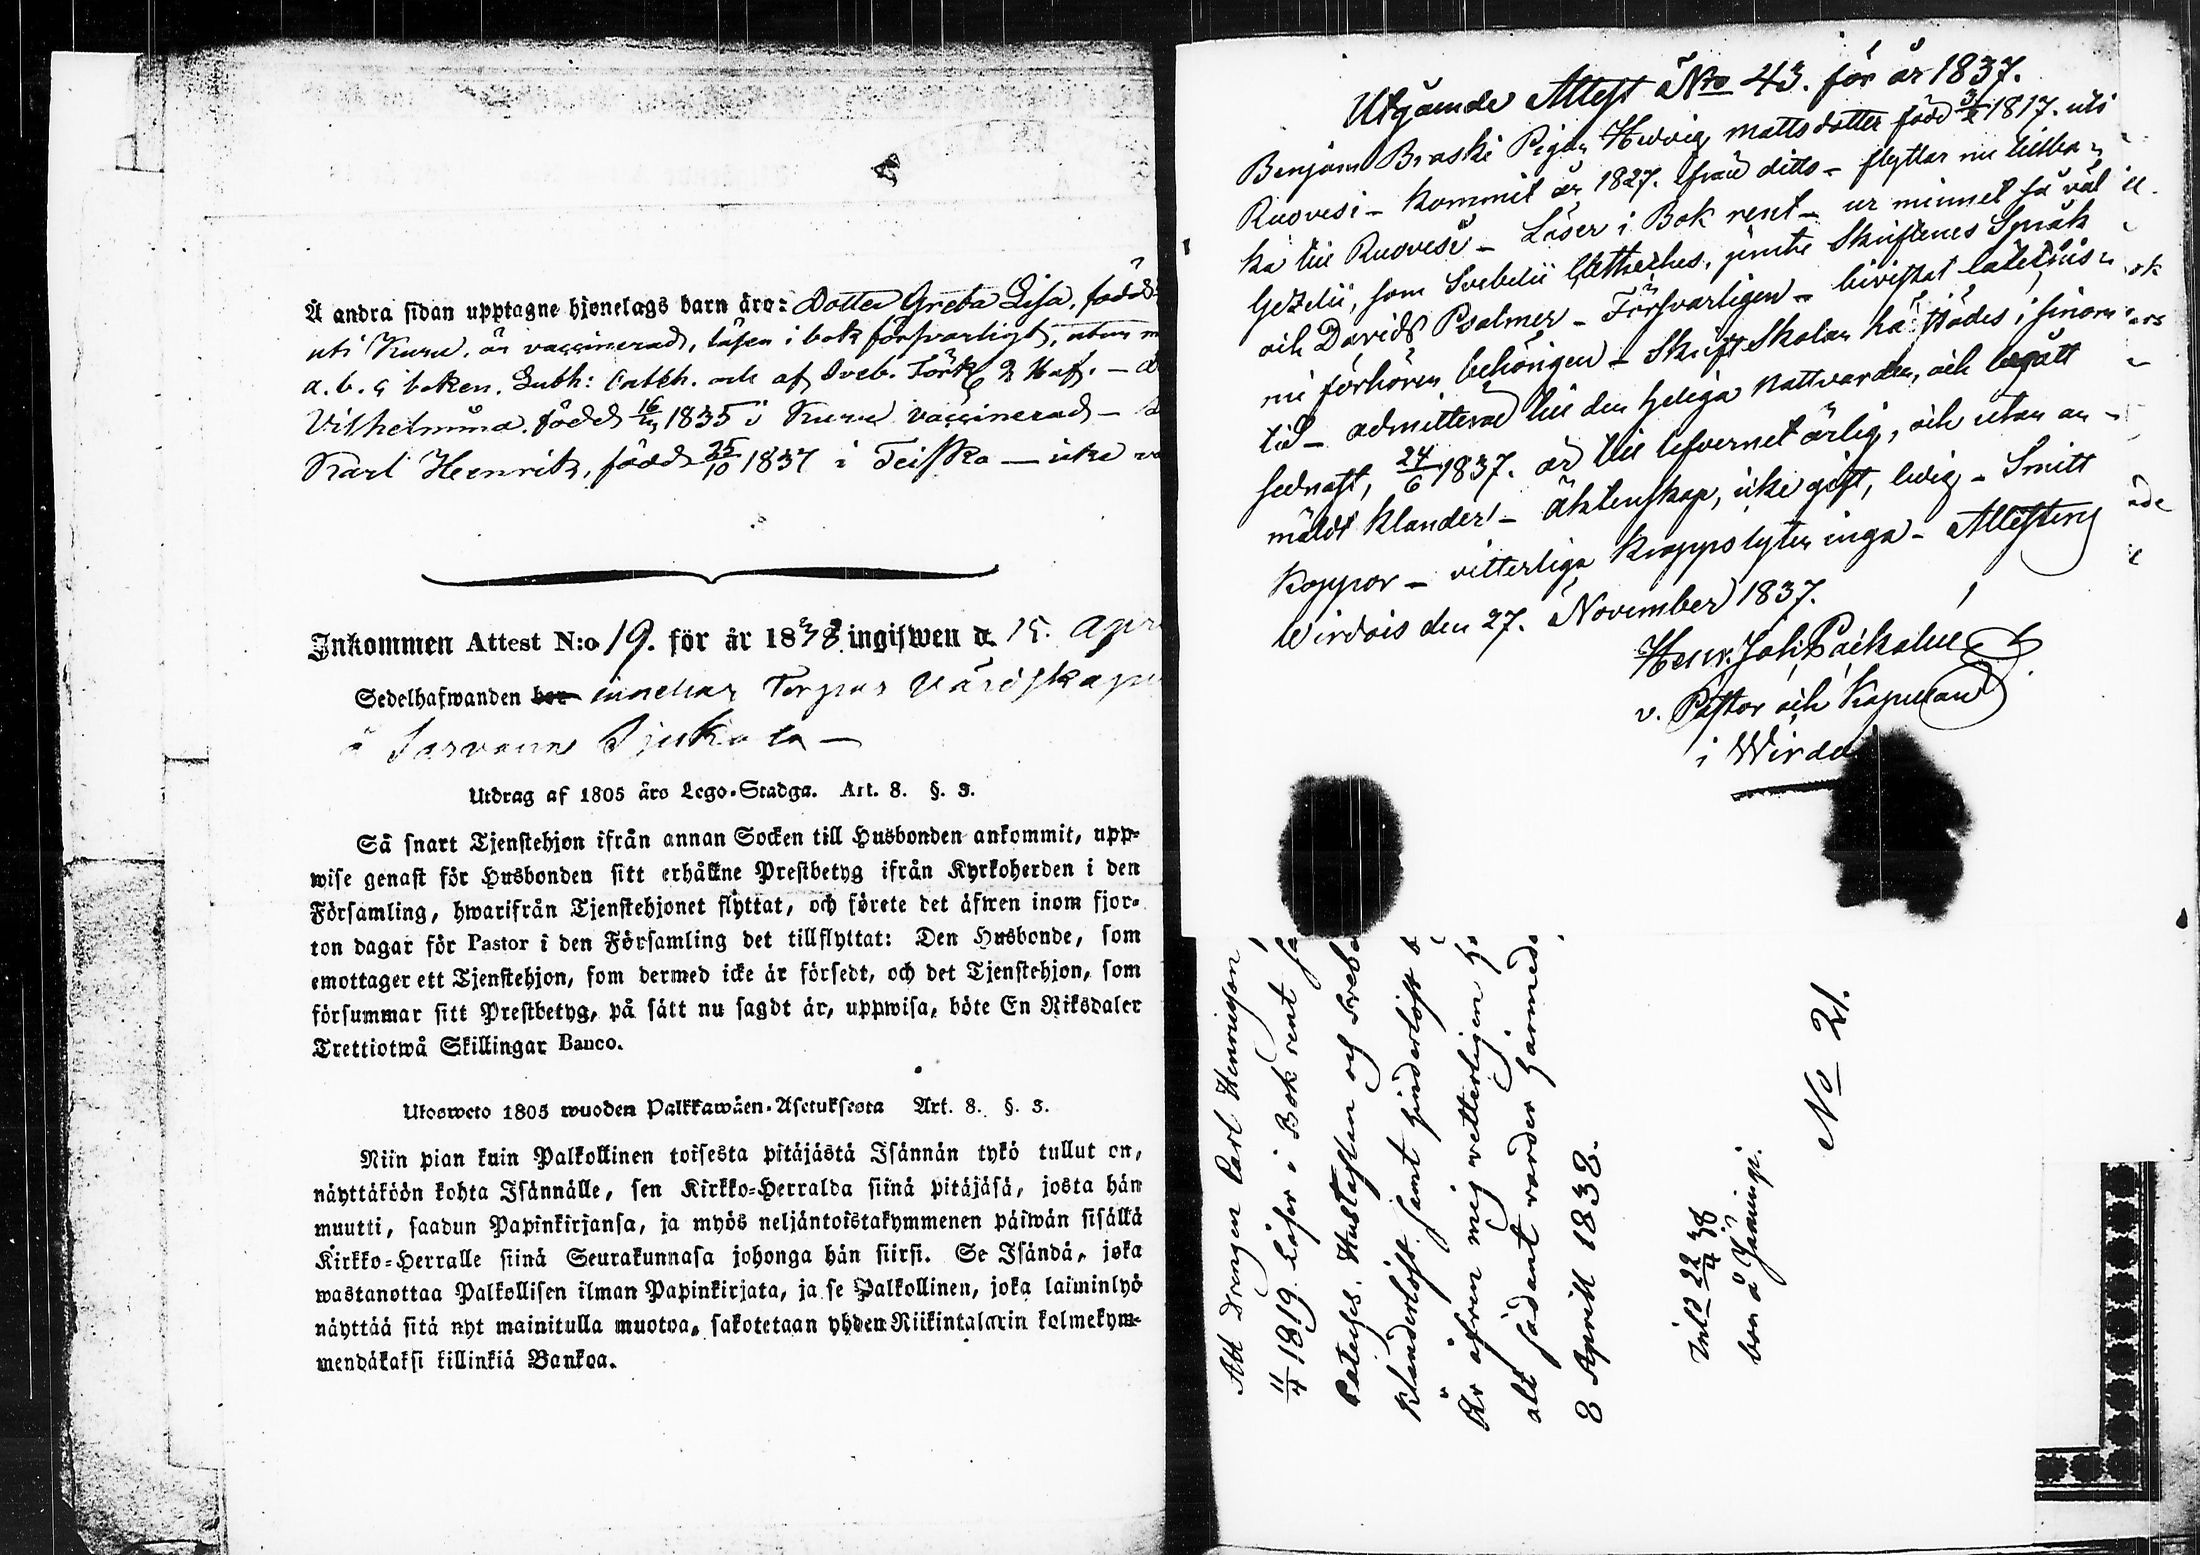 Å andra sidan upptagne hjonelags barn äro: Dotter Greta Lisa, född
uti Kuru, är vaccinerad, läser i bok försvarligt, utur m
a. b. c boken. Luth: Catech. och af Sveb. Förkl 2 Huf. —
Vilhelmina. född 16 1835 i Kuru vaccinerad —
Karl Henrik, född 25/10 1837 i Teisko — icke va
Inkommen Attest N:o 19. för år 1838 ingifwen d. 15. Apr
Sedelhafwanden bor innehar Torpar Värdskapet
å Sarvana
Utdrag af 1805 års Lego-Stadga. Art. 8. §. 3.
Så snart Tjenstehjon ifrån annan Socken till Husbonden ankommit, upp-
wise genast för Husbonden sitt erhållne Prestbetyg ifrån Kyrkoherden i den
Församling, hwarifrån Tjenstehjonet flyttat, och förete det äfwen inom fjor-
ton dagar för Pastor i den Församling det tillflyttat: Den Husbonde, som
emottager ett Tjenstehjon, som dermed icke är försedt, och det Tjenstehjon, som
försummar sitt Prestbetyg, på sätt nu sagdt är, uppwisa, böte En Riksdaler
Trettiotwå Skillingar Banco.
Ulosweto 1805 wuoden Palkkawäen-Asetuksesta Art. 8. §. 3.
Niin pian kuin Palkollinen toisesta pitäjästä Isännän tykö tullut on,
näyttäköön kohta Isännälle, sen Kirkko-Herralda siinä pitäjäsä, josta hän
muutti, saadun Papinkirjansa, ja myös neljäntoistakymmenen päiwän sisällä
Kirkko-Herralle siinä Seurakunnasa johonga hän siirsi. Se Isändä, joka
wastanottaa Palkollisen ilman Papinkirjata, ja se Palkollinen, joka laiminlyö
näyttää sitä nyt mainitulla muotoa, sakotetaan yhden Riikintalarin kolmekym-
mendäkaksi killinkiä Bankoa.
Utgående Attest Nro 43. för år 1837.
Benjam Braski Pigan Hedvig Mattsdotter född 3 1817. uti
Ruovesi — kommit år 1827. ifrån ditto — flyttar nu tillba-
ka till Ruovesi — Läser i Bok rent — ur minnet så väl
Gezelii, som Svebelii Catheches, jemte Skriftenes Språk
och Davids Psalmer — Försvarligen — bivistat
nu förhören behörigen — Skriftskolan i sinom
tid — admitterad till den heliga nattvarden, och begått
sednast, 24/6 1837. är till lefvernet ärlig, och utan an-
mäldt klander — äktenskap, icke gift, ledig — Smitt
Koppor — vitterliga kroppslyten inga — Attesterar
Wirdois den 27. November 1837.
Henr. Joh.
v. Pastor och Kapellan
i Wirdo
Att Drengen Carl Henricsson
11/4 1819. Läser i Bok rent
Cateches. Hustaflan och Sveb
klanderlöst samt hinderlöst
Är äfven mig vetterligen
alt sådant varder härmed
8 Aprill 1838.
Inl. 22/4 38
bon å
No 21.